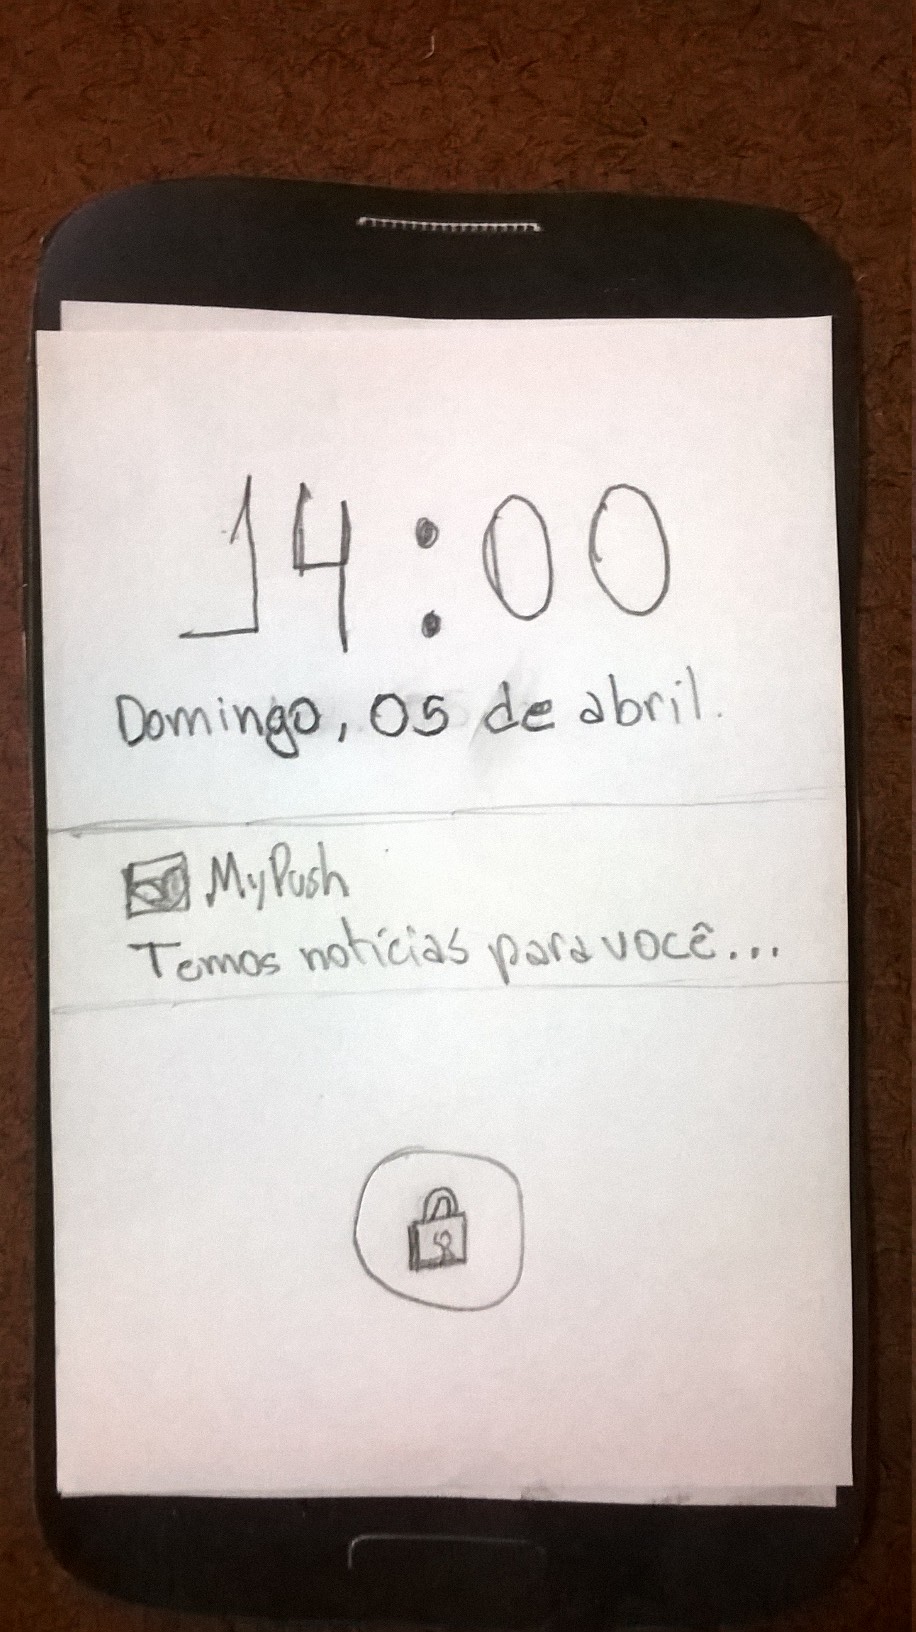 14:00
Domingo, 05 de abril.
MyPush
Temos notícias para você...